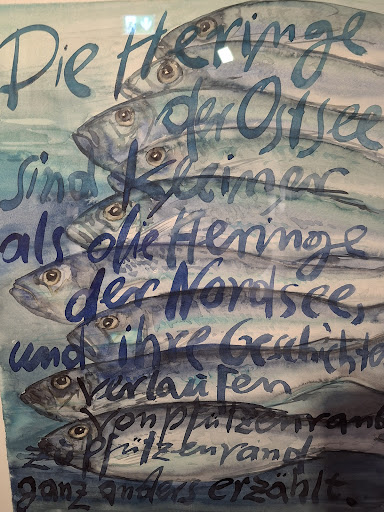 Die Heringe
der Ostsee
sind kleiner
als die Heringe
der Nordsee,
und ihre Geschichte
verlaufen
von Pfützenrand
zu Pfützenrand
ganz anders erzählt.